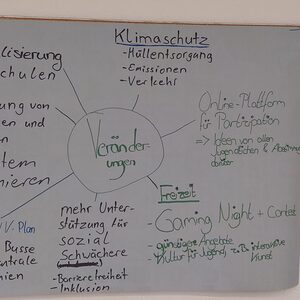 Klimaschutz
- Müllentsorgung
- Emissionen
- Verkehr
alisierung
chulen
ung von
en und
en
tem
nieren
Veränder-
ungen
Online-Plattform
für Partizipation
=> Ideen von allen
Jugendlichen &
darüber
Freizeit
- Gaming Night + Contest
- günstigere Angebote
- Kultur für Jugendl. z.B. interaktive
Kunst
mehr Unter-
stützung für
sozial
Schwächere
- Barrierefreiheit
- Inklusion
V-Plan
Busse
entrale
nien